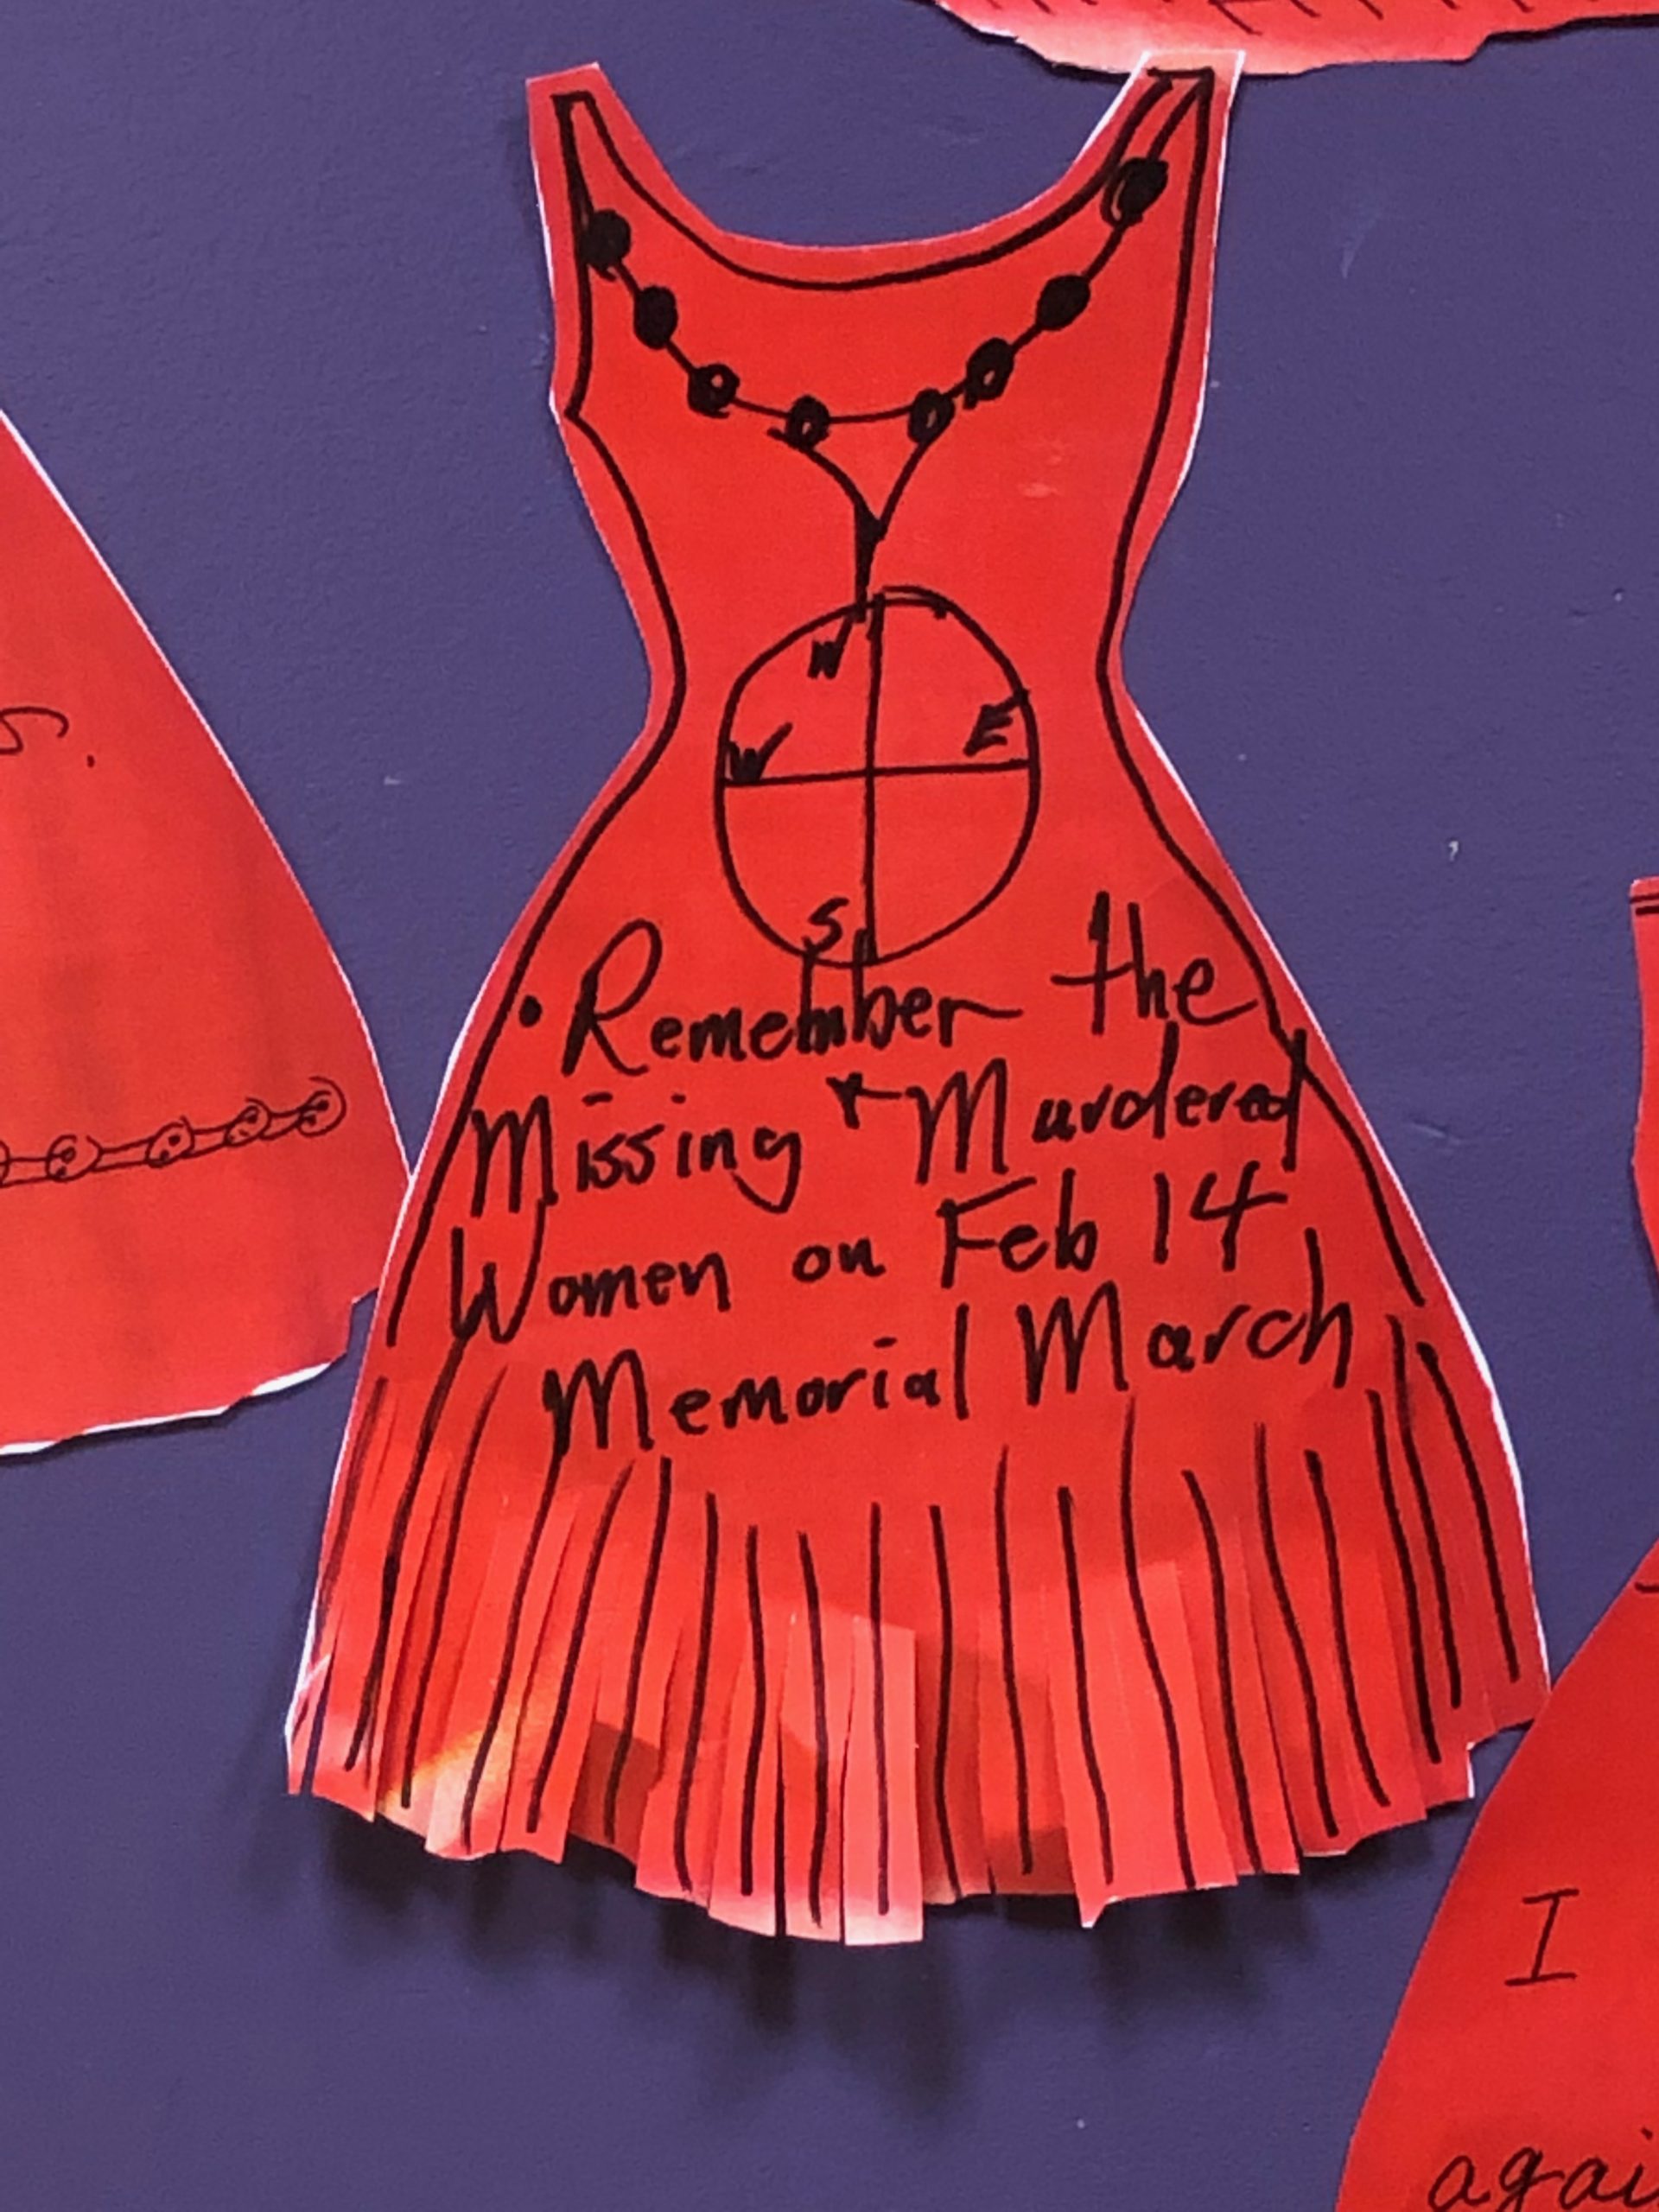 N
W E
S
• Remember the
Missing + Murdered
Women on Feb 14
Memorial March
s.
I
agai